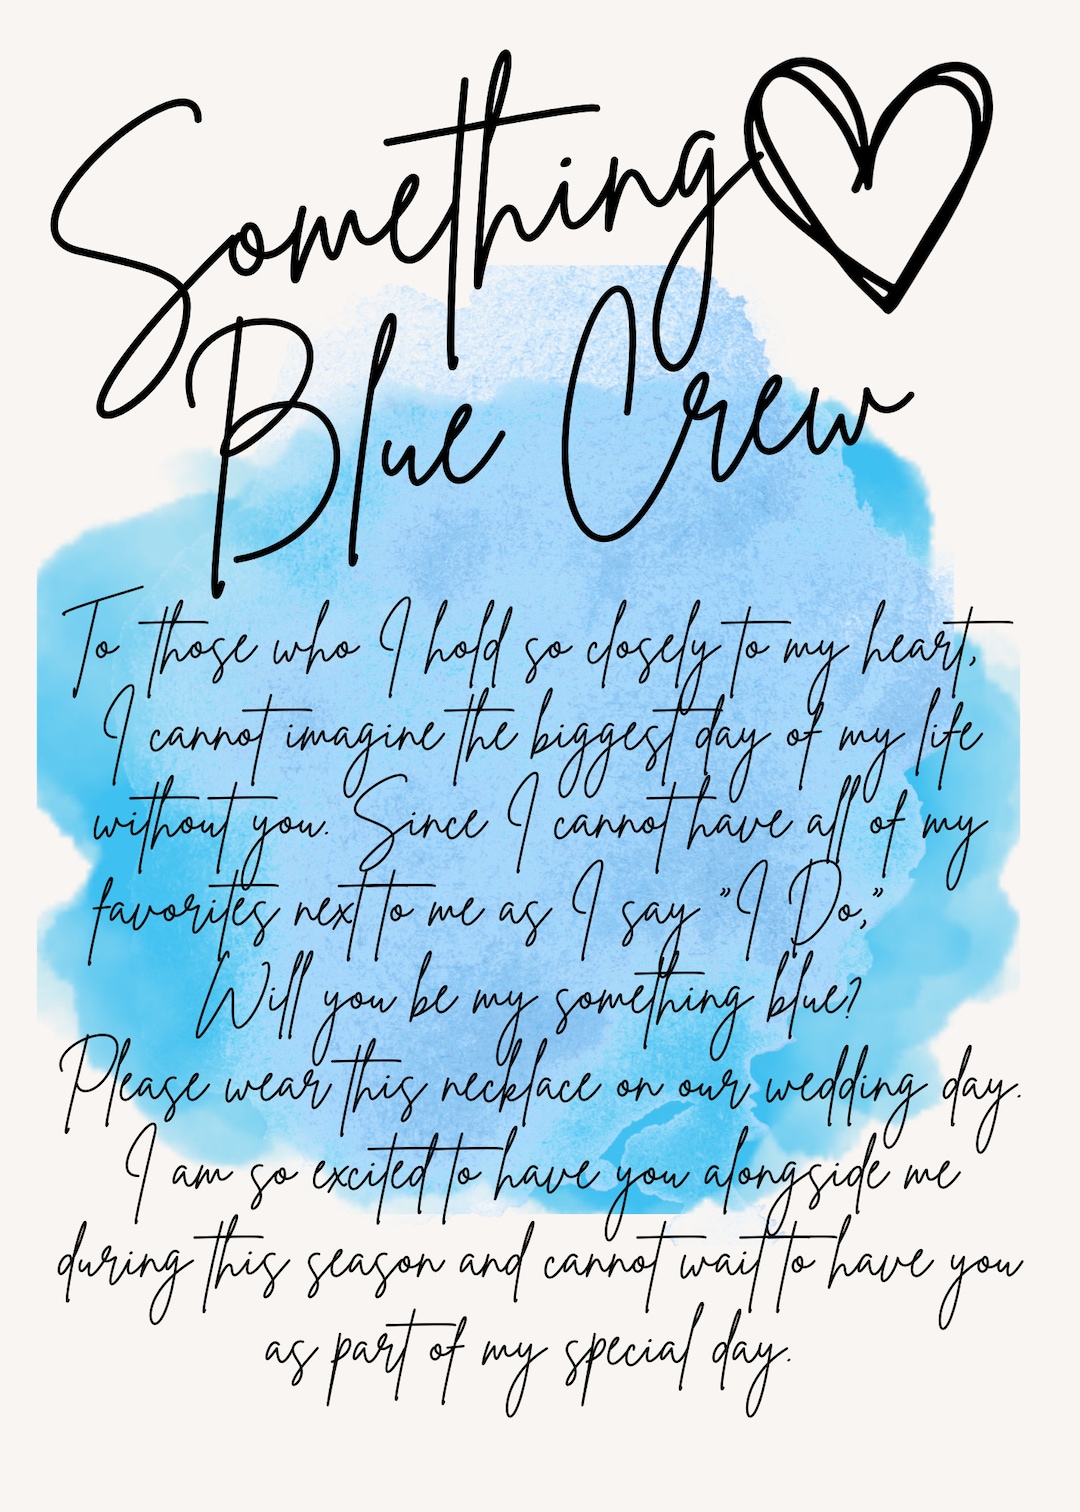 Something
Blue Crew
To those who I hold so closely to my heart,
I cannot imagine the biggest day of my life
without you. Since I cannot have all of my
favorites next to me as I say "I Do,"
Will you be my something blue?
Please wear this necklace on our wedding day.
I am so excited to have you alongside me
during this season and cannot wait to have you
as part of my special day.